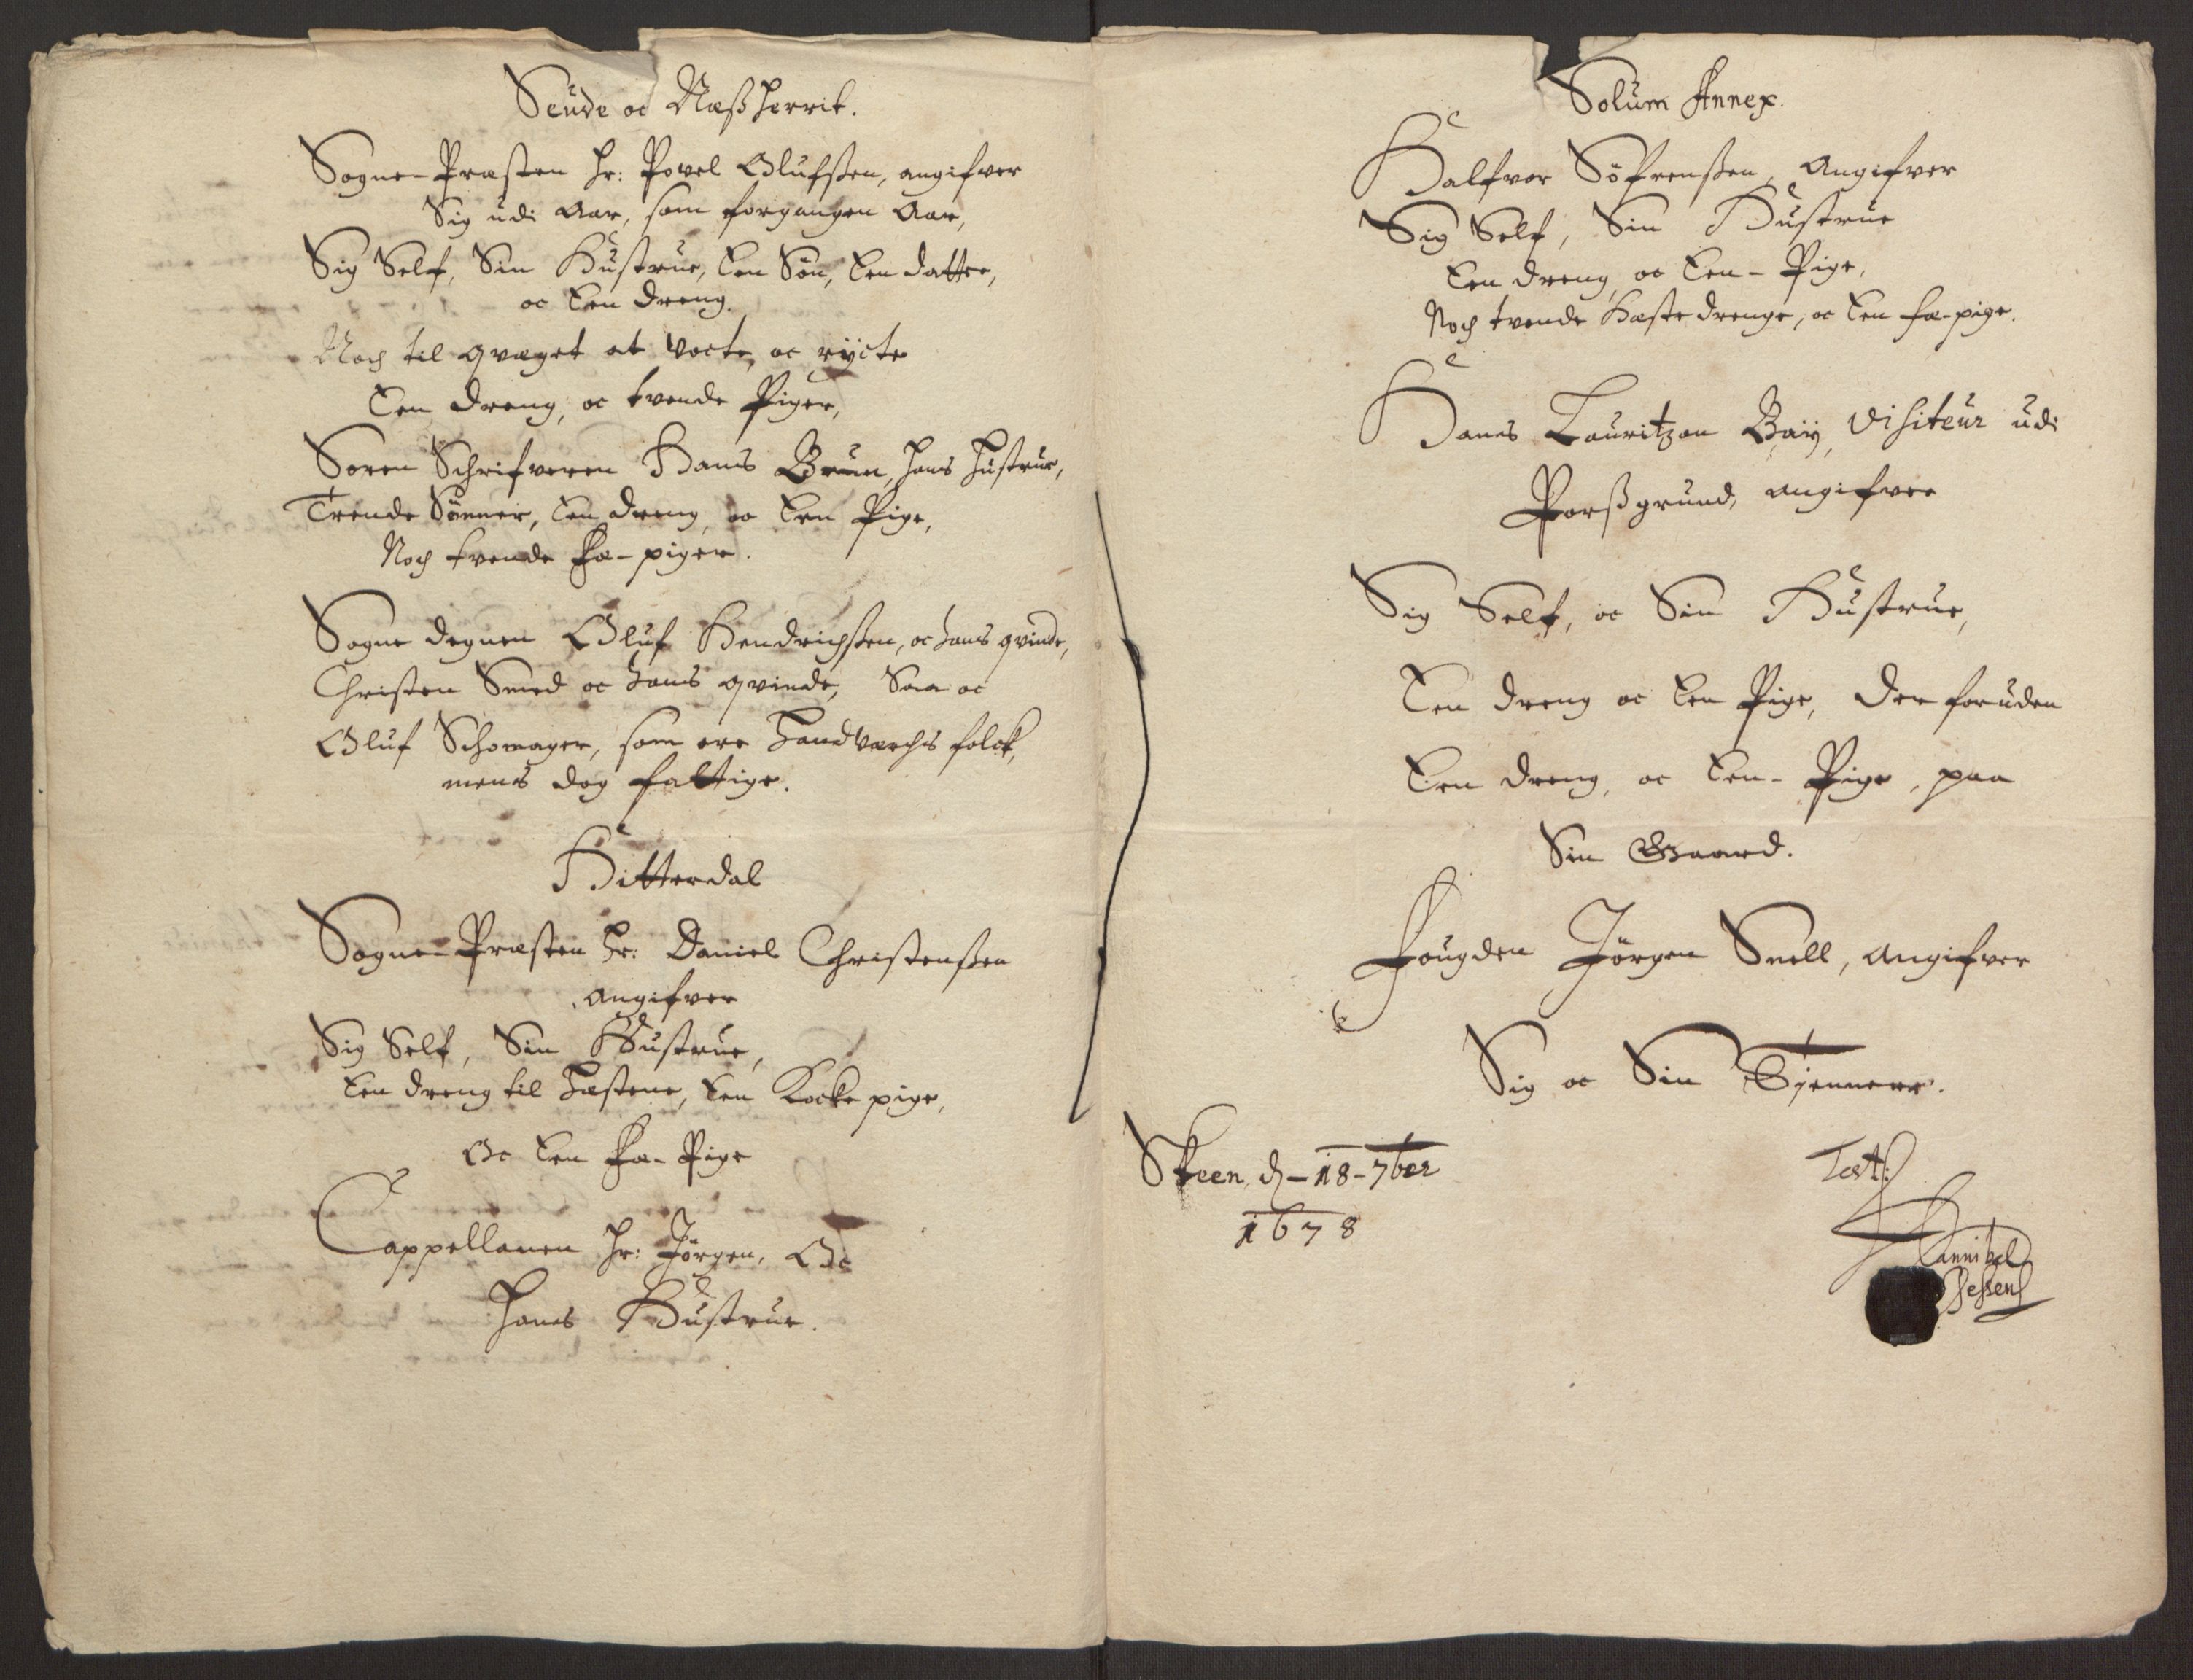 Seude oc Næßherrit.
Sogne-Præsten Hr: Povel Olufsßen, angifver
Sig udi Aar, som forgangen Aar,
Sig Self, Sin Hustrue, Een Søn, Een datter,
oc Een dreng.
Noch til qvæget at vocte, oc rycte
Een dreng, oc tvende Piger,
Soren Schrifveren Hans Brun, hans hustrue,
Trende Sønner, Een dreng, oc Een Pige,
Noch tvende Fæ-piger.
Sogne degnen Oluf Hendrichsßen, oc hans qvinde,
Christen Smed oc hans qvinde, Saa oc
Oluf Schomager, som ere Handverchs folck,
mens dog fattige.
Hitterdal
Sogne-Præsten Hr: Daniel Christensßen
angifver
Sig Self, Sin Hustrue,
Een dreng til Hestene, Een Kocke pige,
Oc Een Fæ-Pige
Cappellanen Hr: Jørgen, Oc
Hans Hustrue.
Solum Annex.
Halfvor Søfrensßen, Angifver
Sig Self, Sin Hustrue
Een dreng, oc Een-Pige,
Noch tvende Hæste drenge, oc Een fæ-pige.
Hans Lauritzøn Baÿ, Visiteur udi
Porßgrund, angifver
Sig Self, oc Sin Hustrue,
Een dreng oc Een Pige, der foruden
Een dreng, oc Een-Pige, paa
Sin Gaard.
Fougden Jørgen Snell, angifver
Sig oc Sin Tjennere.
Skeen, d-18-7ber
1678
Test:
Hannibal
Jessen